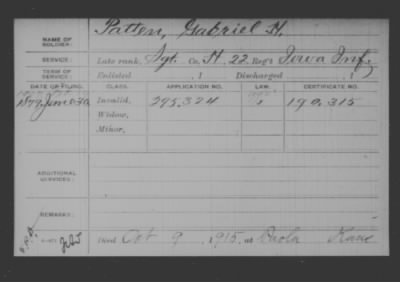 NAME OF SOLDIER: Patten, Gabriel H.
SERVICE: Late rank, Sgt. Co. H, 22 Reg't Iowa Inf.
TERM OF SERVICE: Enlisted , 1 Discharged , 1
DATE OF FILING. CLASS. APPLICATION NO. LAW. CERTIFICATE NO.
1879 June 30 Invalid, 295,324 190,315
Widow,
Minor,
ADDITIONAL SERVICES:
REMARKS:
Died Oct 9, 1915, at Paola Kans